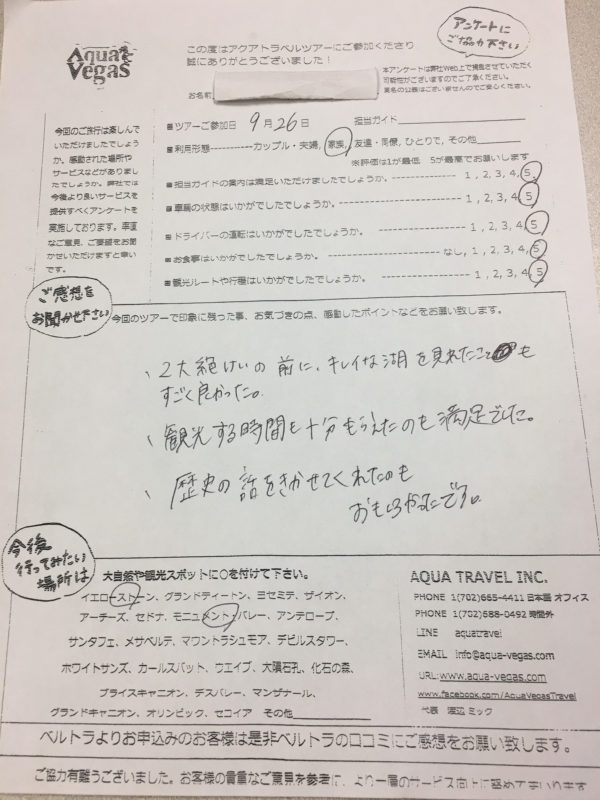 Aqua
Vegas
この度はアクアトラベルツアーにご参加くださり
誠にありがとうございました！
アンケートに
ご協力下さい
本アンケートは弊社Web上で掲載させていただく
可能性がございますのでご了承ください。
実名の公表はございませんのでご安心ください。
お名前
今回のご旅行は楽しんで
いただけましたでしょう
か。感動された場所や
サービスなどがありまし
たでしょうか。弊社では
今後より良いサービスを
提供すべくアンケートを
実施しております。率直
なご意見、ご要望をお聞
かせいただけますと幸い
です。
■ツアーご参加日 9月26日 担当ガイド
■利用形態-----------カップル・夫婦, 家族, 友達・同僚, ひとりで, その他
※評価は1が最低、5が最高でお願いします
■担当ガイドの案内は満足いただけましたでしょうか。 --------------- 1 , 2, 3, 4, 5
■車輌の状態はいかがでしたでしょうか。 ------------------------ 1 , 2, 3, 4, 5
■ドライバーの運転はいかがでしたでしょうか。 ----------------- 1 , 2, 3, 4, 5
■お食事はいかがでしたでしょうか。 ----------------- なし, 1 , 2, 3, 4, 5
■観光ルートや行程はいかがでしたでしょうか。 ----------------- 1 , 2, 3, 4, 5
ご感想を
お聞かせ下さい
今回のツアーで印象に残った事、お気づきの点、感動したポイントなどをお願い致します。
、2大絶けいの前に、キレイな湖を見れたことも
すごく良かった。
、観光する時間も十分もらえたのも満足でした。
、歴史の話をきかせてくれたのも
おもしろかったです。
今後
行ってみたい
場所は
大自然や観光スポットに○を付けて下さい。
イエローストーン、グランドティートン、ヨセミテ、ザイオン、
アーチーズ、セドナ、モニュメントバレー、アンテロープ、
サンタフェ、メサベルテ、マウントラシュモア、デビルスタワー、
ホワイトサンズ、カールスバット、ウエイブ、大隕石孔、化石の森、
ブライスキャニオン、デスバレー、マンザナール、
グランドキャニオン、オリンピック、セコイア その他
AQUA TRAVEL INC.
PHONE 1(702)665-4411 日本語 オフィス
PHONE 1(702)588-0492 時間外
LINE aquatravel
EMAIL info@aqua-vegas.com
URL: www.aqua-vegas.com
www.facebook.com/AquaVegasTravel
代表 渡辺 ミック
ベルトラよりお申込みのお客様は是非ベルトラの口コミにご感想をお願い致します。
ご協力有難うございました。お客様の貴重なご意見を参考に、より一層のサービス向上に努めてまいります